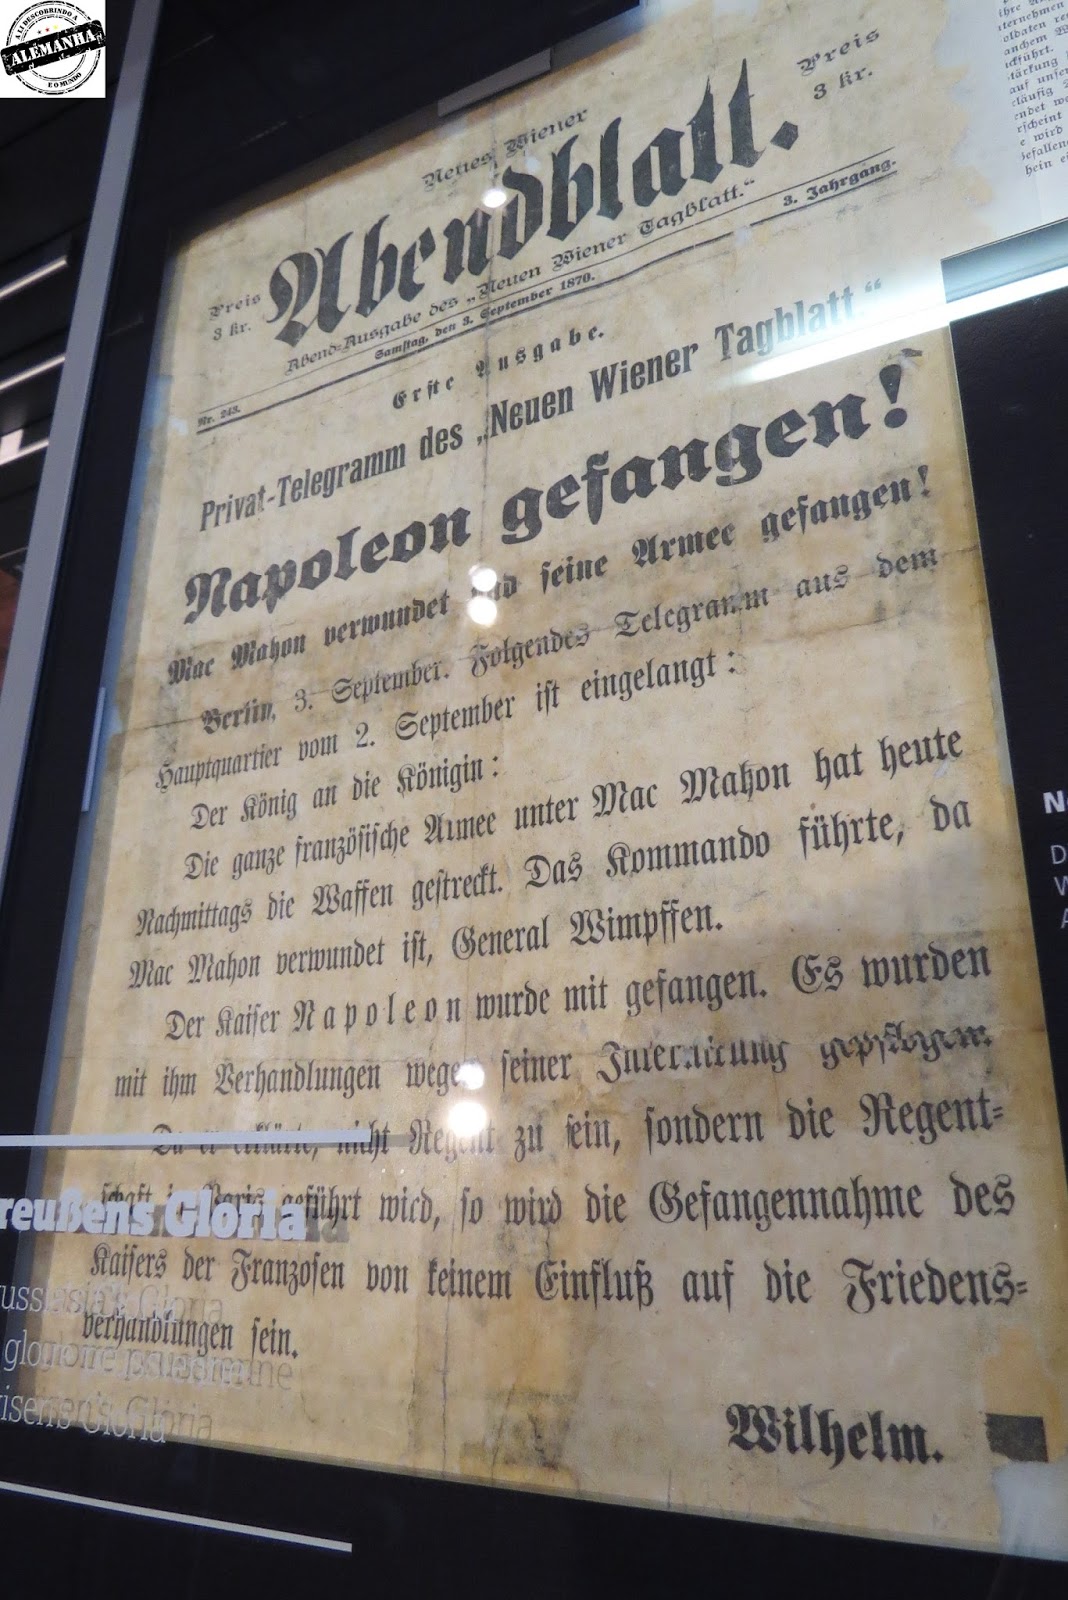 ALI DESCOBRINDO A
ALEMANHA
E O MUNDO
Neues Wiener
Preis
3 kr.
Abendblatt.
Preis
3 kr.
Abend-Ausgabe des „Neuen Wiener Tagblatt.“
Nr. 243.
Samstag, den 3. September 1870.
3. Jahrgang.
Erste Ausgabe.
Privat-Telegramm des „Neuen Wiener Tagblatt.“
Napoleon gefangen!
Mac Mahon verwundet und seine Armee gefangen!
Berlin, 3. September. Folgendes Telegramm aus dem
Hauptquartier vom 2. September ist eingelangt:
Der König an die Königin:
Die ganze französische Armee unter Mac Mahon hat heute
Nachmittags die Waffen gestreckt. Das Kommando führte, da
Mac Mahon verwundet ist, General Wimpffen.
Der Kaiser Napoleon wurde mit gefangen. Es wurden
mit ihm Verhandlungen wegen seiner gepflogen.
Da er erklärte, nicht Regent zu sein, sondern die Regent-
schaft in Paris geführt wird, so wird die Gefangennahme des
Kaisers der Franzosen von keinem Einfluß auf die Friedens-
verhandlungen sein.
Wilhelm.
reußens Gloria
Gloria
prussienne
Gloria